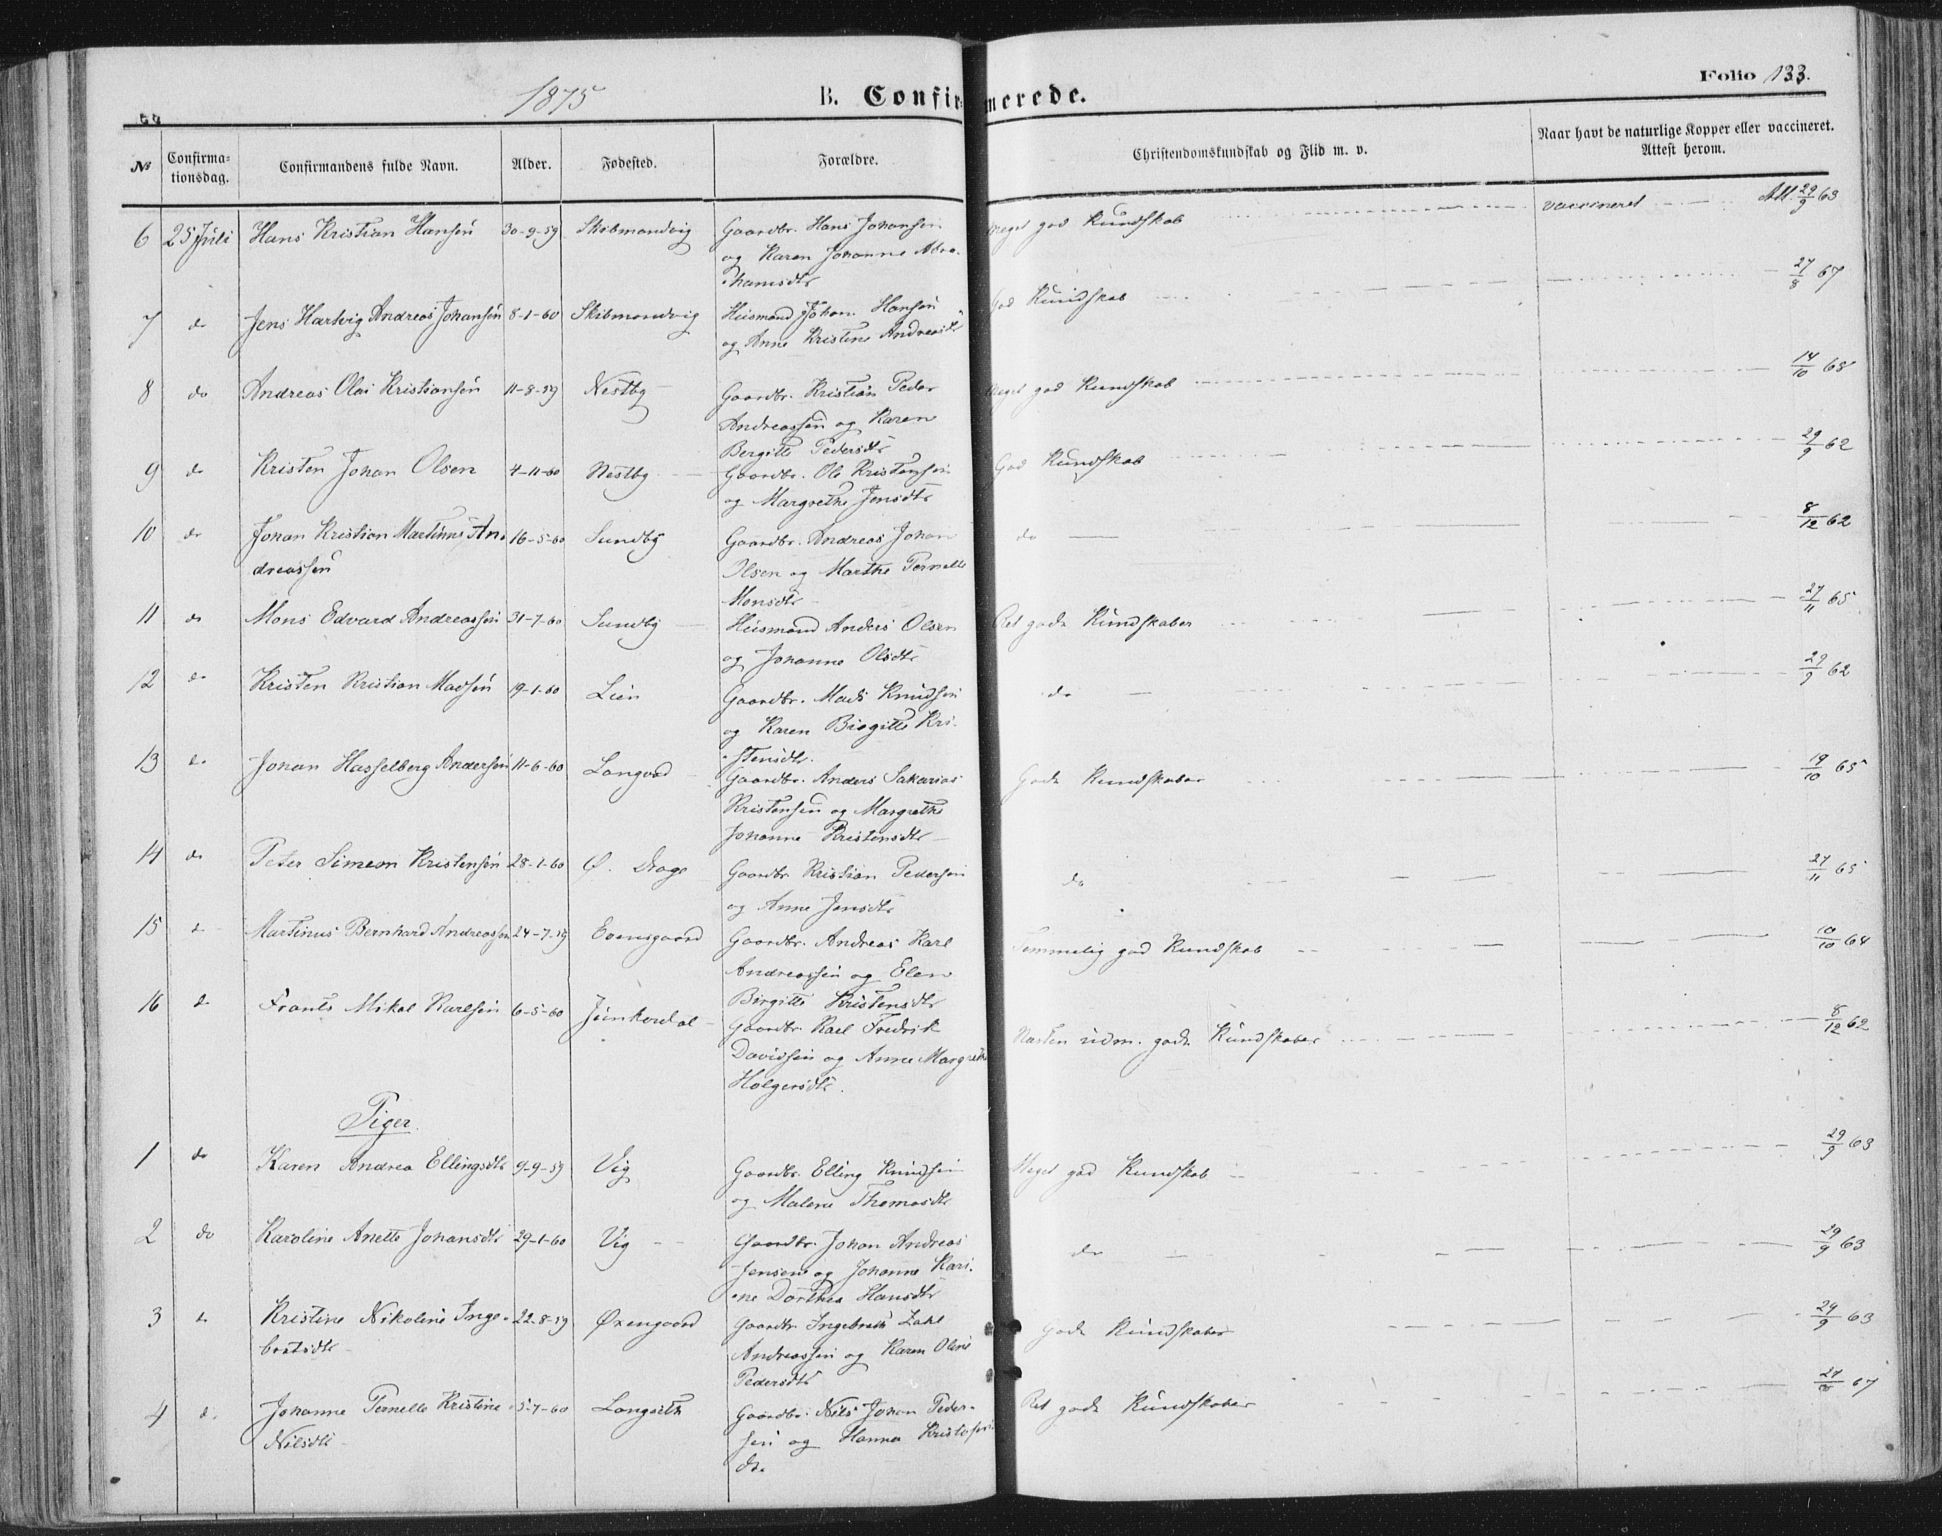 1875
B. Confirmerede.
Folio 133.
№
Confirma-
tionsdag.
Confirmandens fulde Navn.
Alder.
Fødested.
Forældre.
Christendomskundskab og Flid m. v.
Naar havt de naturlige Kopper eller vaccineret.
Attest herom.
6 25 Juli Hans Kristian Hansen 30-9-59 Skibmandvig Gaardbr. Hans Johansen Meget god Kundskab vaccineret Att. 29/9 63
og Karen Johanne Abra-
hamsdtr
7 do Jens Hartvig Andreas Johansen 8-1-60 Skibmandvig Husmand Johan Hansen God Kundskab 27/8 67
og Anne Kristine Andreasdtr
8 do Andreas Olai Kristiansen 11-8-59 Nestby Gaardbr. Kristian Peder Meget god Kundskab 14/10 68
Andreassen og Karen
Bergitte Pedersdtr
9 do Kristen Johan Olsen 4-11-60 Nestby Gaardbr. Ole Kristensen God Kundskab 29/9 62
og Margrethe Jensdtr
10 do Johan Kristian Martinus An- 16-5-60 Sundby Gaardbr. Andreas Johan do 8/12 62
dreassen Olsen og Marthe Pernelle
Monsdtr
11 do Mons Edvard Andreassen 31-7-60 Sundby Husmand Anders Olsen Ret gode Kundskaber 27/11 65
og Johanne Olsdtr
12 do Kristen Kristian Madsen 19-1-60 Lien Gaardbr. Mads Knudsen do 29/9 62
og Karen Birgitte Kri-
stensdtr.
13 do Johan Hasselberg Andersen 11-6-60 Langvad Gaardbr. Anders Sakarias Gode Kundskaber 19/10 65
Kristensen og Margrethe
Johanne Kristensdtr
14 do Peter Simeon Kristensen 28-1-60 Ø. Drage Gaardbr Kristian Pedersen do 27/11 65
og Anne Jensdtr
15 do Martinus Bernhard Andreassen 24-7-59 Evensgaard Gaardbr. Andreas Karl Temmelig god Kundskab 10/10 64
Andreassen og Elen
Birgitte Kristensdtr
16 do Frants Mikal Karlsen 6-5-60 Junkerdal Gaardbr. Karl Fredrik Næsten udm. gode Kundskaber 8/12 62
Davidsen og Anne Margrethe
Holgersdtr.
Piger
1 do Karen Andrea Ellingsdtr 9-9-59 Vig Gaardbr. Elling Knudsen Meget god Kundskab 29/9 63
og Malene Thomasdtr
2 do Karoline Anette Johansdtr 29-1-60 Vig Gaardbr. Johan Andreas do 29/9 63
Jensen og Johanne Kari-
ne Dorthea Hansdtr
3 do Kristine Nikoline Inge- 22-8-59 Øxengaard Gaardbr. Ingebreth Zahl Gode Kundskaber 29/9 63
bretsdtr Andreassen og Karen Oline
Pedersdtr
4 do Johanne Pernelle Kristine 5-7-60 Langseth Gaardbr. Nils Johan Peder- Ret gode Kundskaber 67
Nilsdtr sen og Hanna